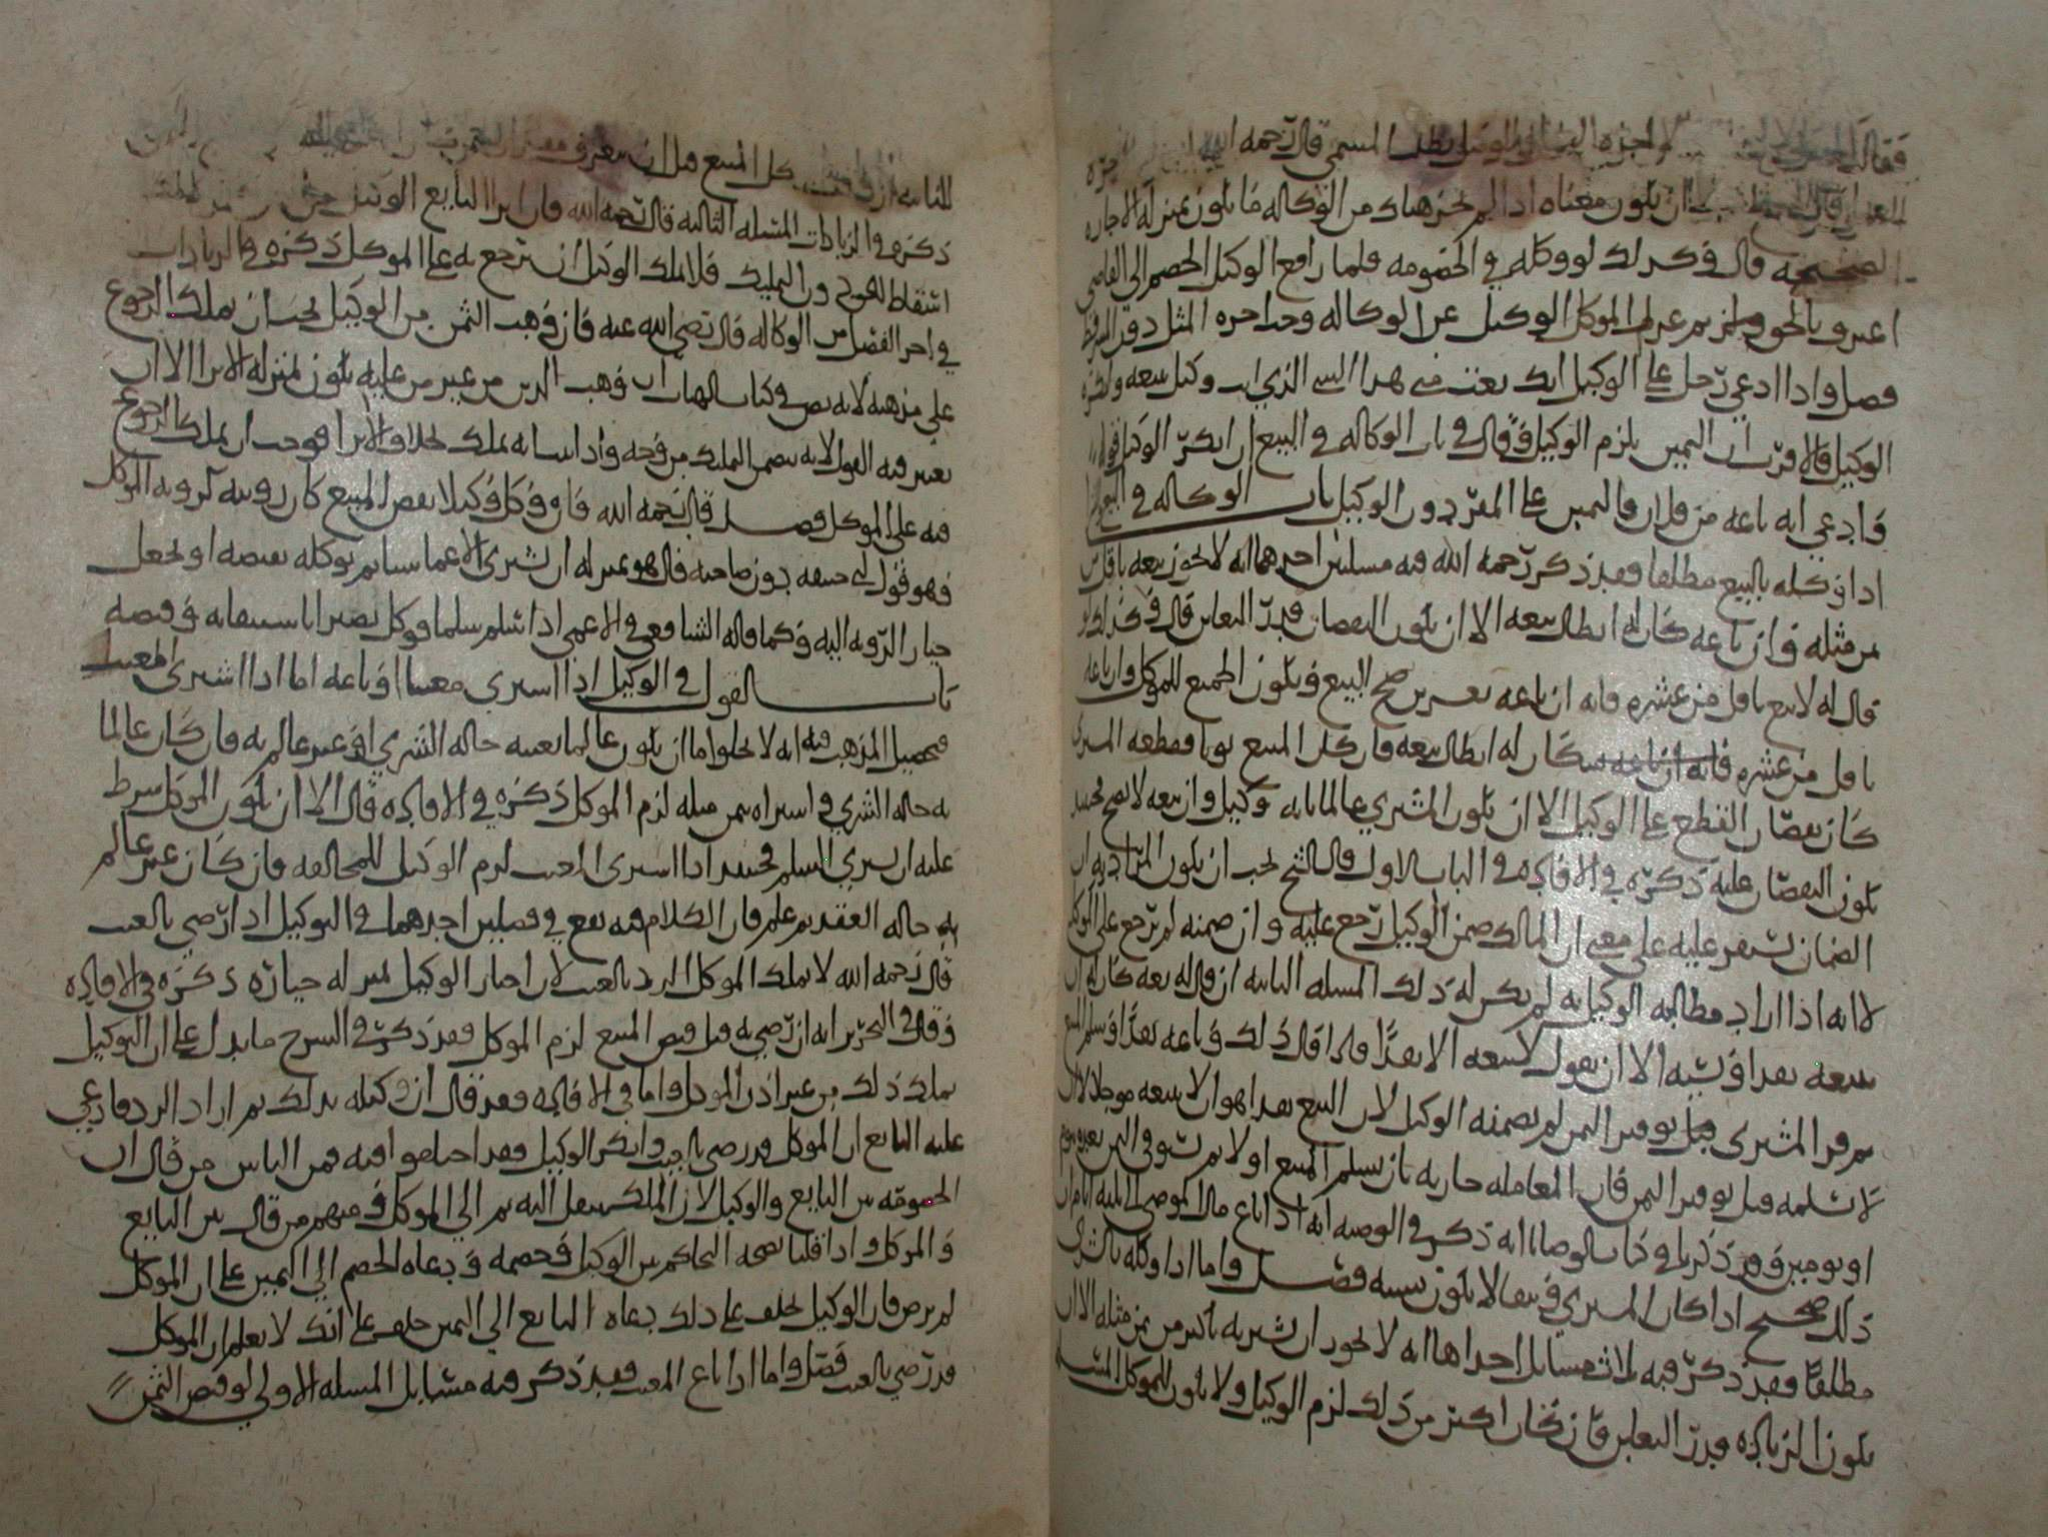 لاجره المسمى قال رحمه الله
ان يكون معناه اذا لم يحز هناك من الوكاله ما يكون بمنزله الاجاره
الصحيحه قال وكذلك لو وكله في الخصومه فلما رافع الوكيل الخصم الى القاضي
اعترف بالحق ثم عزل الموكل الوكيل عن الوكاله وجب اجره المثل
فصل واذا ادعى رجل على الوكيل انك بعت مني هذا الشي الذي انت وكيل ببيعه وانكره
الوكيل فالاقرب ان اليمين يلزم الوكيل وقال في باب الوكاله في البيع ان انكر الوكيل
وادعى انه باعه من فلان فاليمين على المقر دون الوكيل باب الوكاله في البيع
اذا وكله بالبيع مطلقا فقد ذكر رحمه الله فيه مسلتين احدهما انه لا يجوز بيعه باقل من
ثمن مثله وان باعه كان له ابطال بيعه الا ان يكون النقصان قدر التغابن قال وكذلك لو
قال له لا تبع باقل من عشره فانه ان باعه بعشرين صح البيع ويكون الجميع للموكل وان باعه
باقل من عشره كان له ابطال بيعه فان كان المبيع ثوبا فقطعه المشتري
كان نقصان القطع على الوكيل الا ان يكون المشتري عالما بانه وكيل وان بيعه لا يصح فحينئذ
يكون النقصان عليه ذكره في الافاده في الباب الاول قال الشيخ يجب ان يكون المراد به ان
الضمان يستقر عليه على معنى ان المالك ضمن الوكيل رجع عليه وان ضمنه لم يرجع على الوكيل
لا انه اذا اراد مطالبه الوكيل به لم يكن له ذلك المسله الثانيه ان قال له بعه كان له ان
يبيعه نقدا ونسيه الا ان يقول لا تبعه الا نقدا فاذا قال ذلك وباعه نقدا وسلم المبيع
ثم فر المشتري قبل توفير الثمن لم يضمنه الوكيل لان البيع نقدا هو ان لا يبيعه موجلا لا ان
لا يسلمه قبل توفير الثمن فان المعامله جاريه بان يسلم المبيع اولا ثم يستوفي الثمن بعده بيوم
او يومين وقد ذكرنا في كتاب الوصايا انه ذكر في الوصيه انه اذا باع مال الموصي الى ثلثه ايام ان
ذلك صحيح اذا كان المشتري وفيا لا يكون نسيه فصل واما اذا وكله بالشرى
مطلقا فقد ذكر فيه ثلاث مسايل احداها انه لا يجوز ان يشتريه باكثر من ثمن مثله الا ان
يكون الزياده قدر التغابن فان كان اكثر من ذلك لزم الوكيل ولا يكون للموكل المسله
الثانيه كل المبيع قبل ان يعرف مقدار الثمن
ذكره في الزيادات المسله الثالثه قال رحمه الله فان ابرا البايع الوكيل من
اسقاط للعوض دون التمليك فلا يملك الوكيل ان يرجع به على الموكل ذكره في الزيادات
في اخر الفصل من الوكاله قال رضي الله عنه فان وهب الثمن من الوكيل يجب ان يملك الرجوع
على مذهبه لانه نص في كتاب الهبات ان وهب الدين من غير من عليه يكون بمنزله الابرا الا ان
يعتبر فيه القبول لانه يتضمن التمليك من وجه واذا انه يملك بخلاف الابرا فوجب ان يملك الرجوع
فيه على الموكل فصل قال رحمه الله فان وكل وكيلا بقبض المبيع كان رويته كرويه الموكل
فهو قول ابي حنيفه دون صاحبيه قال هو بمنزله ان يشتري الاعمى شيا ثم يوكله بقبضه او يجعل
خيار الرويه اليه وكما قاله الشافعي في الاعمى اذا اسلم سلما فوكل بصيرا باستيفايه وقبضه
باب القول في الوكيل اذا اشترى معيبا او باعه اما اذا اشترى المعيب
فتحصيل المذهب فيه انه لا يخلوا اما ان يكون عالما بعيبه حاله الشرى او غير عالم به فان كان عالما
به حاله الشرى واشتراه بثمن مثله لزم الموكل ذكره في الافاده قال الا ان يكون الموكل شرط
عليه ان يشتري السليم فحينئذ اذا اشترى المعيب لزم الوكيل للمخالفه فان كان غير عالم
به حاله العقد ثم علم فان الكلام فيه يقع في فصلين احدهما في الوكيل اذا رضي بالعيب
قال رحمه الله لا يملك الموكل الرد بالعيب لان اختار الوكيل بمنزله خياره ذكره في الافاده
وقال في التحرير انه ان رضي به قبل قبض المبيع لزم الموكل وقد ذكر في الشرح ما يدل على ان الوكيل
يملك ذلك من غير اذن الموكل واما في الافاده فقد قال ان وكيله بذلك ثم اراد الرد فادعى
عليه البايع ان الموكل قد رضي بالعيب وانكر الوكيل فقد اختلفوا فيه فمن الناس من قال ان
الخصومه بين البايع والوكيل لان الملك ينتقل اليه ثم الى الموكل ومنهم من قال بين البايع
والموكل واذا قلنا بصحه التحاكم بين الوكيل وخصمه ودعاه الخصم الى اليمين على ان الموكل
لم يرض فان الوكيل يحلف على ذلك دعاه البايع الى اليمين حلف على انك لا تعلم ان الموكل
قد رضي بالعيب فصل واما اذا باع المعيب فقد ذكر فيه مسايل المسله الاولى لو قبض الثمن